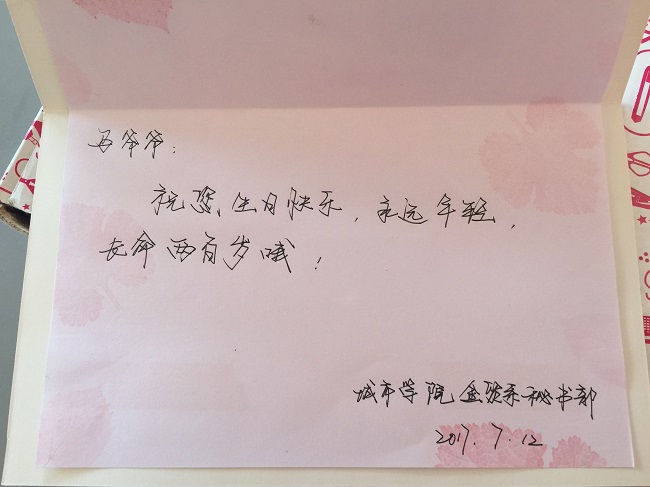 马爷爷：
祝您生日快乐，永远年轻，
长命两百岁哦！
城市学院金贸系秘书部
2017.7.12